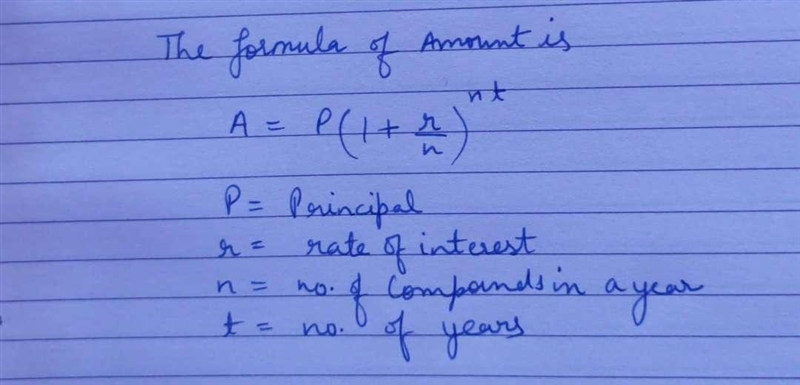 The formula of Amount is
A = P(1 + r/n)^nt
P = Principal
r = rate of interest
n = no. of Compounds in a year
t = no. of years